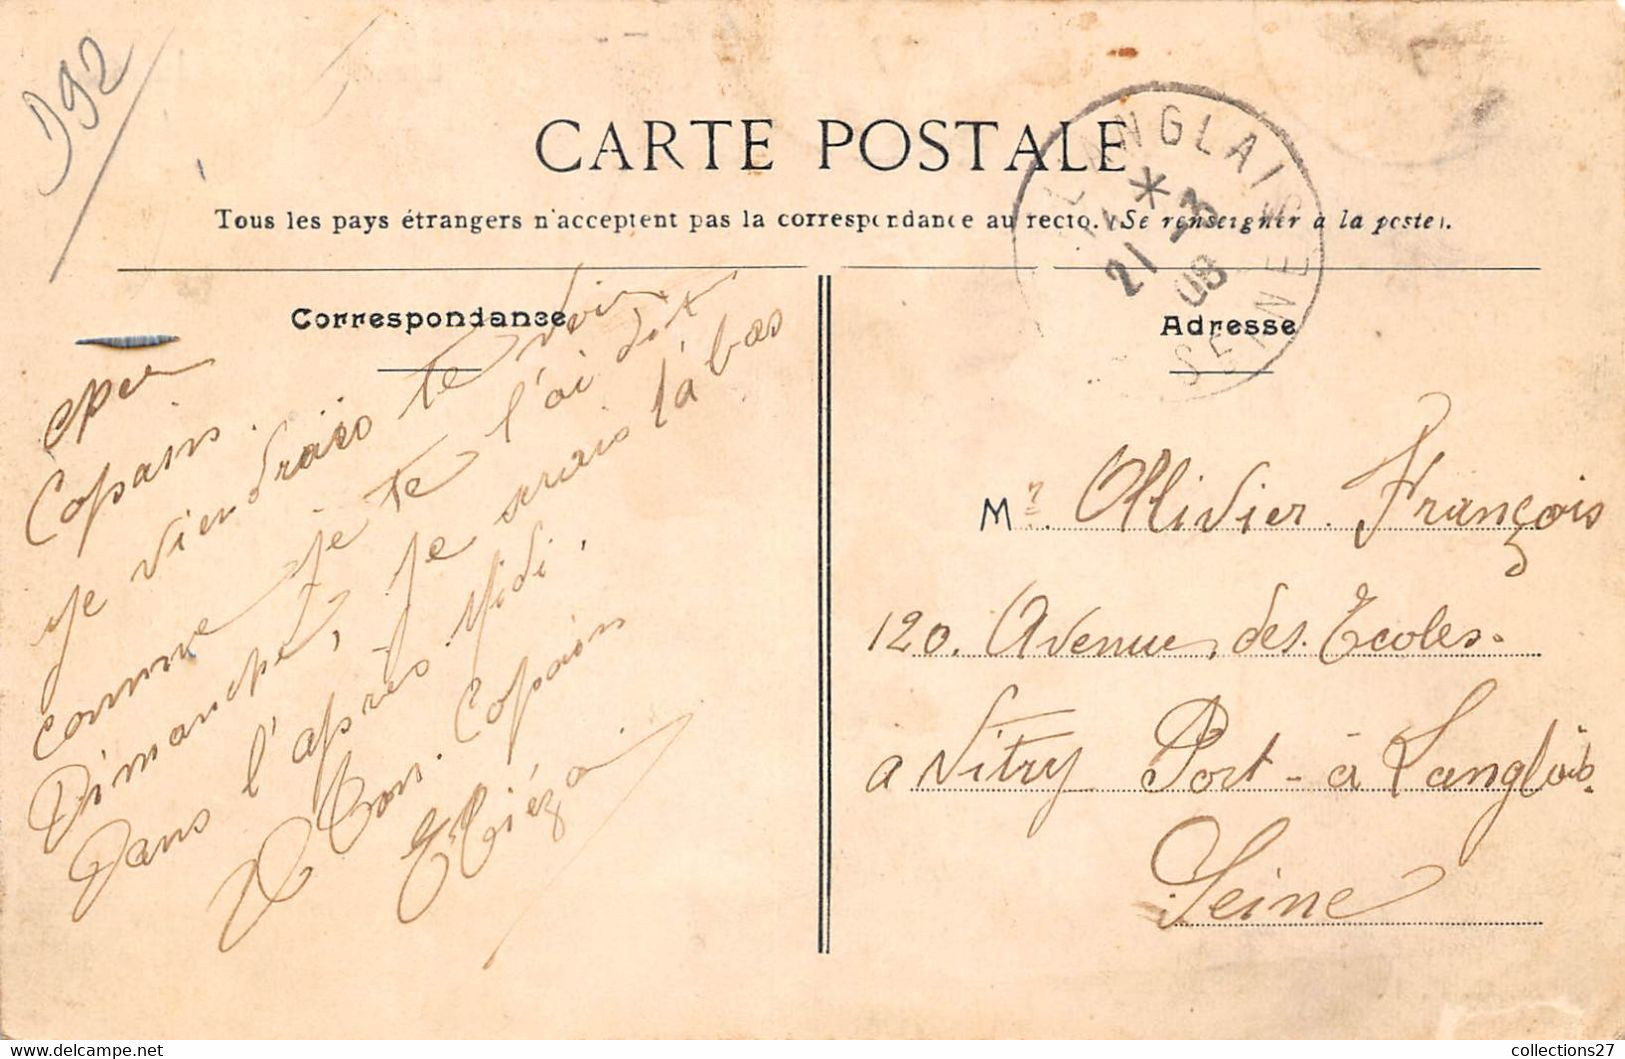 D92
CARTE POSTALE
Tous les pays étrangers n'acceptent pas la correspondance au recto. (Se renseigner à la poste).
L'ANGLAIS
21 -3
08
SEINE
Correspondance
Cher
Copain.
Je viendrais te voir
comme je te l'ai dit
Dimanche, je serais là bas
Dans l'après Midi,
Ton Copain
Adresse
Mr. Ollivier François
120. Avenue, des. Ecoles.
a Vitry Port-à Langlois.
Seine
collections27